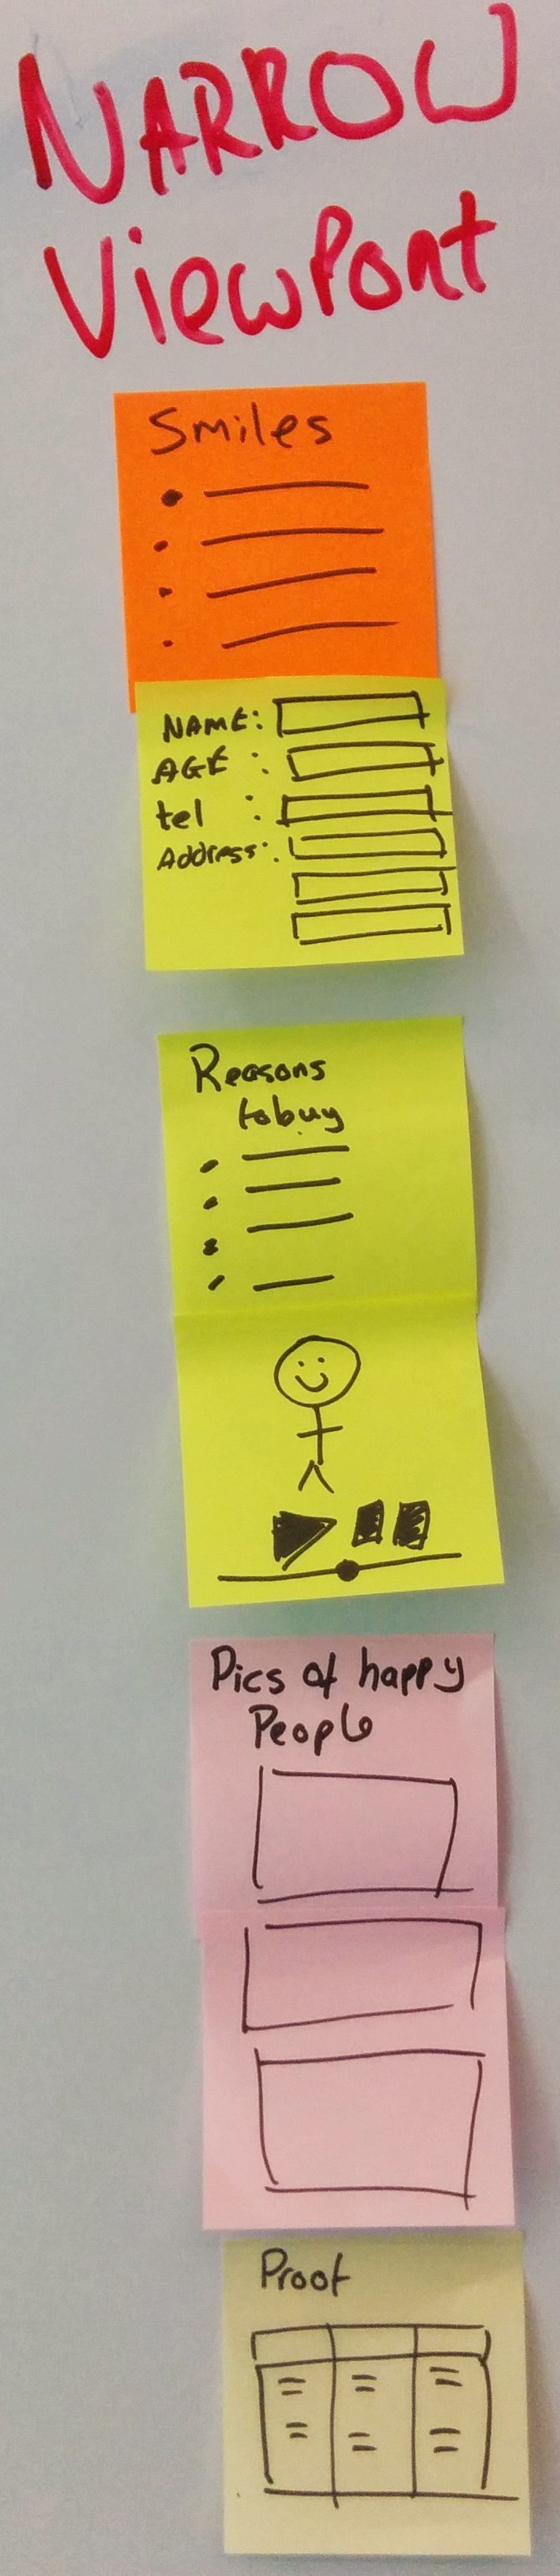 NARROW
ViewPort
Smiles
NAME:
AGE :
tel :
Address:
Reasons
to buy
Pics of happy
People
Proof